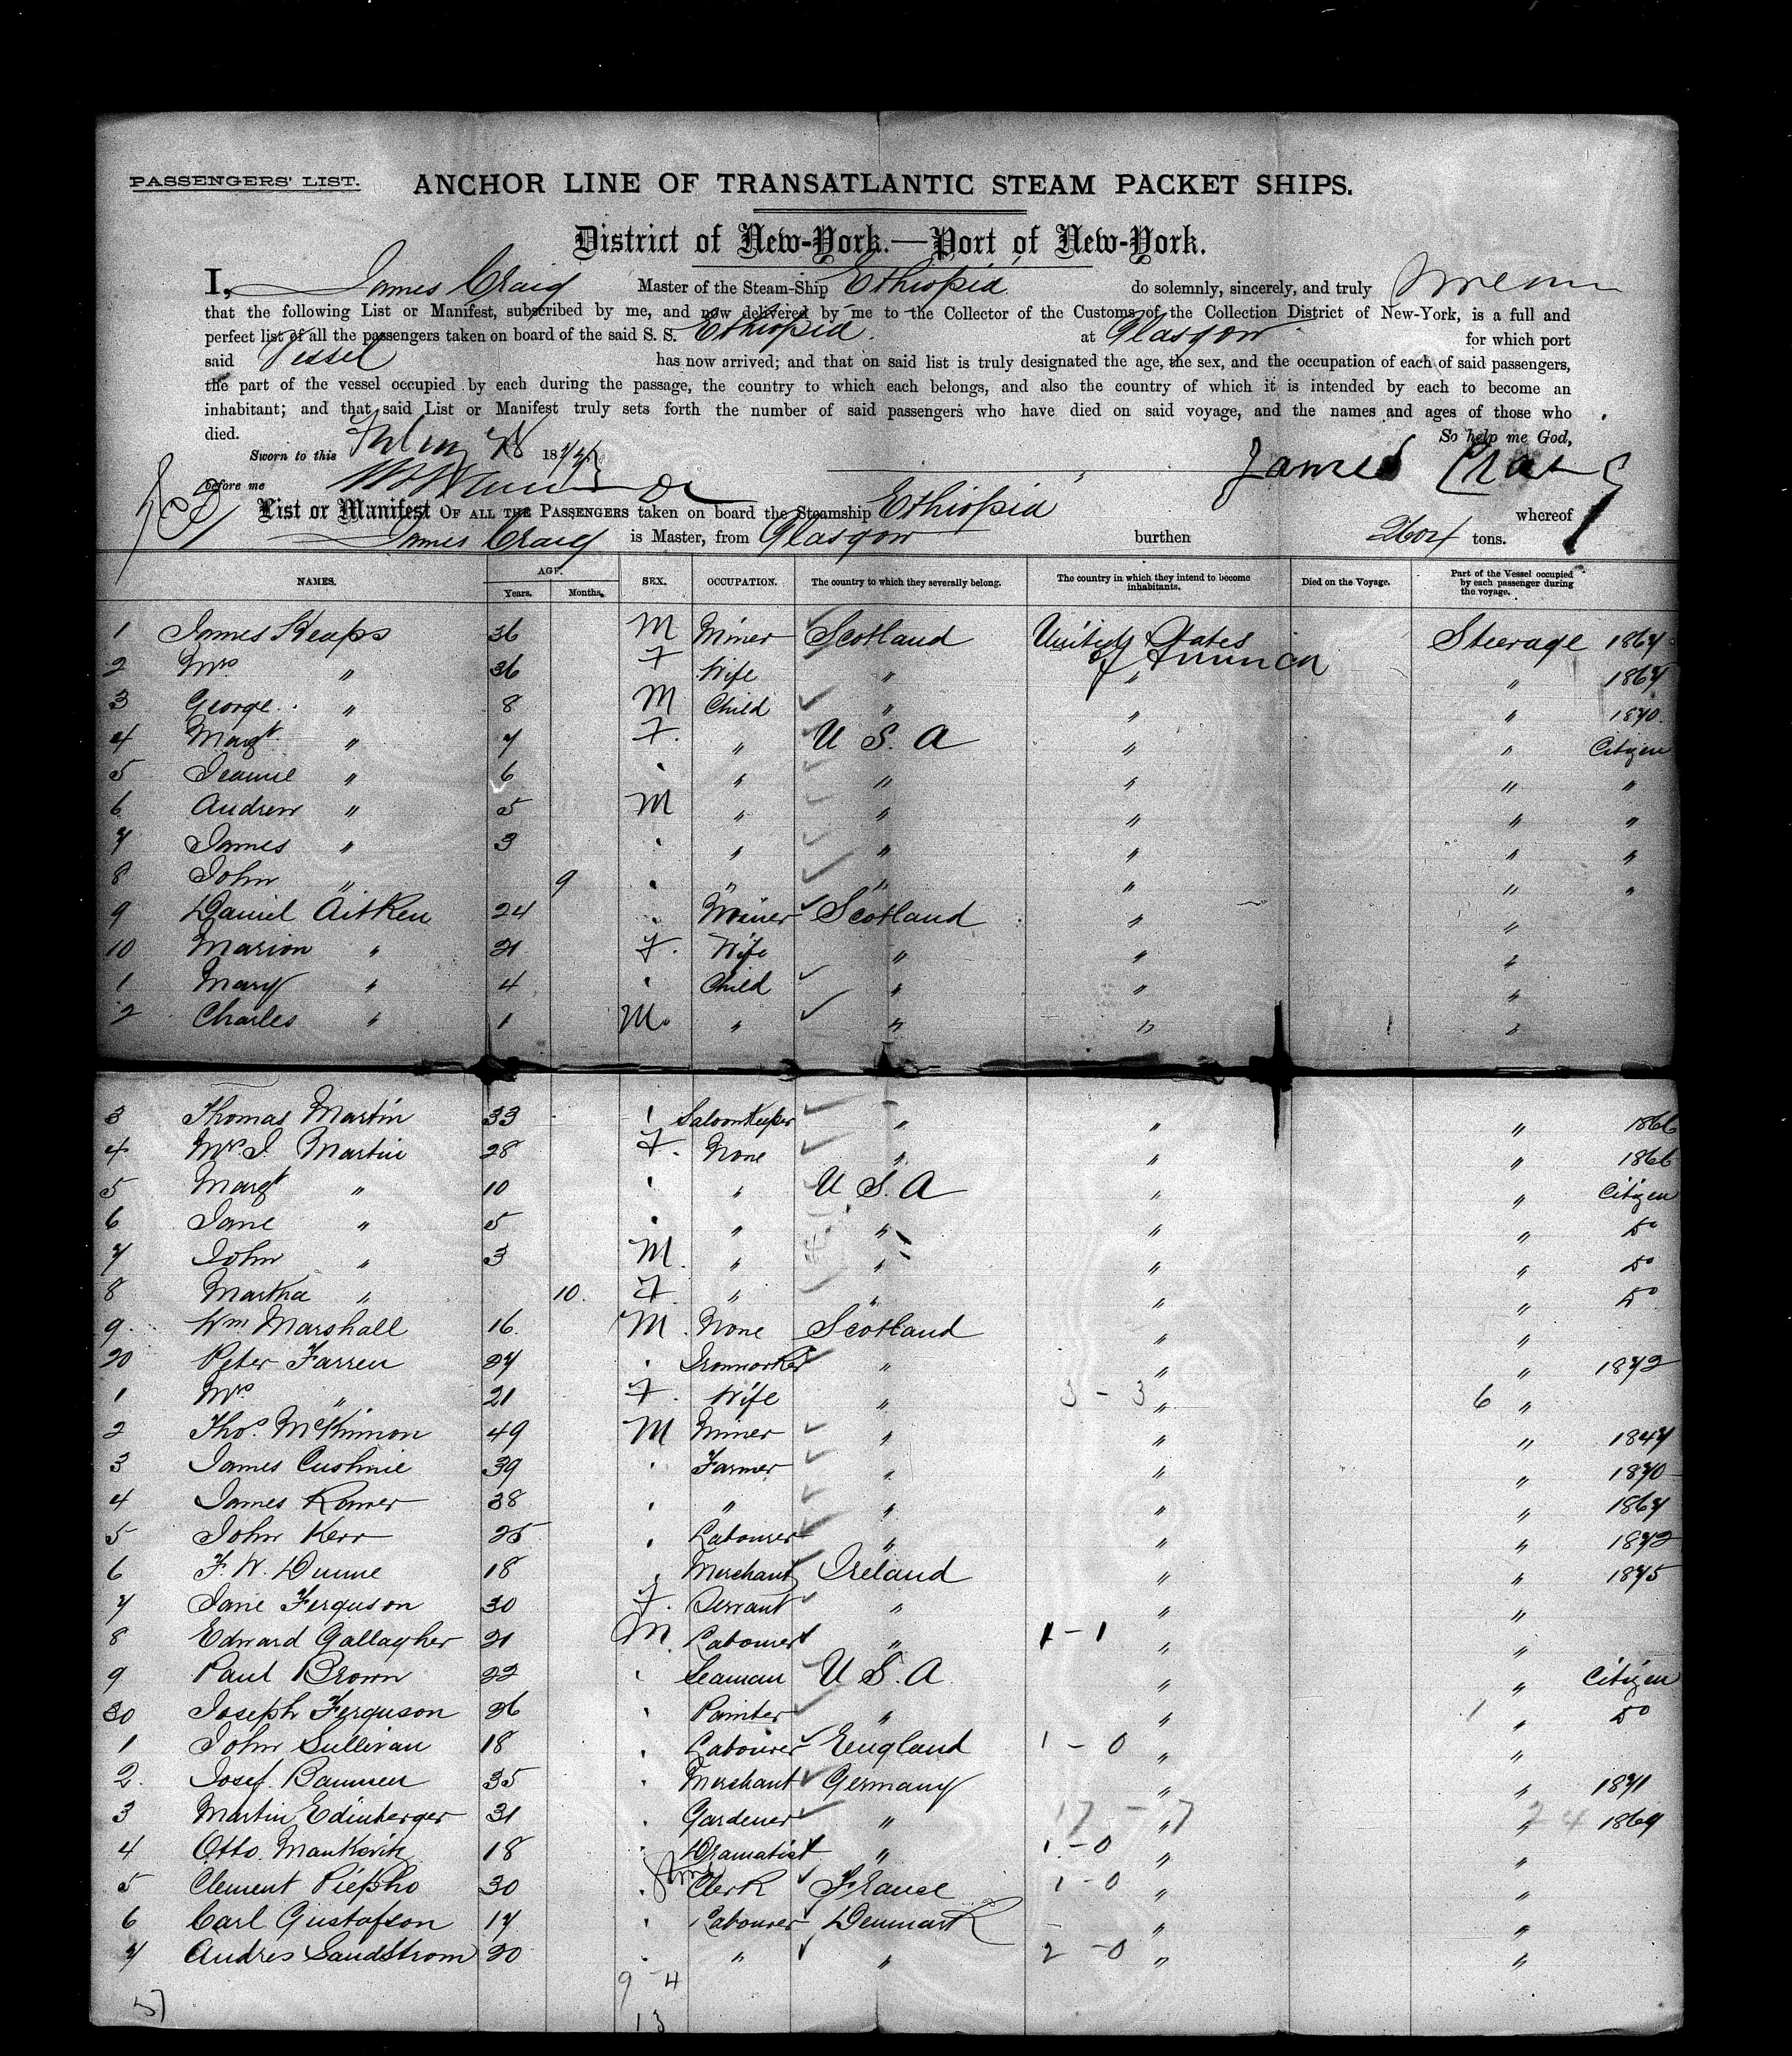 PASSENGERS' LIST.
ANCHOR LINE OF TRANSATLANTIC STEAM PACKET SHIPS.
District of New-York.—Port of New-York.
I, James Craig Master of the Steam-Ship Ethiopia do solemnly, sincerely, and truly
that the following List or Manifest, subscribed by me, and now delivered by me to the Collector of the Customs of the Collection District of New-York, is a full and
perfect list of all the passengers taken on board of the said S. S. Ethiopia. at Glasgow for which port
said Vessel has now arrived; and that on said list is truly designated the age, the sex, and the occupation of each of said passengers,
the part of the vessel occupied by each during the passage, the country to which each belongs, and also the country of which it is intended by each to become an
inhabitant; and that said List or Manifest truly sets forth the number of said passengers who have died on said voyage, and the names and ages of those who
died. So help me God,
Sworn to this 18 James Craig
before me
List or Manifest OF ALL THE PASSENGERS taken on board the Steamship Ethiopia whereof
James Craig is Master, from Glasgow burthen tons.
NAMES. AGE. Years. Months. SEX. OCCUPATION. The country to which they severally belong. The country in which they intend to become inhabitants. Died on the Voyage. Part of the Vessel occupied by each passenger during the voyage.
1 James Heaps 36 M Miner Scotland United States of America Steerage 1867
2 Mrs " 36 F Wife " " " 1867
3 George " 8 M Child " " " 1870
4 Margt " 7 F. " U S. A " " Citizen
5 Jeanie " 6 " " " " " "
6 Andrew " 5 M " " " " "
7 James " 3 " " " " " "
8 John " 9 " " " " " "
9 Daniel Aitken 24 " Miner Scotland " "
10 Marion " 21 F. Wife " " "
1 Mary " 4 " Child " " "
2 Charles " 1 M. " " " "
3 Thomas Martin 33 " SaloonKeeper " " " 1866
4 Mrs J Martin 28 F. None " " " 1866
5 Margt " 10 " " U S. A " " Citizen
6 Jane " 5 " " " " " Do
7 John " 3 M. " " " " Do
8 Martha " 10. F. " " " " Do
9 Wm Marshall 16 M. None Scotland " "
20 Peter Farren 27 " Ironworker " " " 1872
1 Mrs " 21 F. Wife " 3 - 3 " 6 "
2 Thos. McKinnon 49 M Miner " " " 1847
3 James Cushnie 39 " Farmer " " " 1870
4 James Romer 38 " " " " " 1867
5 John Kerr 25 " Labourer " " " 1872
6 F. W. Dunne 18 " Merchant Ireland " " 1875
7 Jane Ferguson 30 F. Servant " " "
8 Edward Gallagher 21 M. Labourer " 1 - 1 " "
9 Paul Brown 22 " Seaman U S. A. " " Citizen
30 Joseph Ferguson 26 " Painter " " 1 " Do
1 John Sullivan 18 " Labourer England 1 - 0 " "
2. Josef. 35 " Merchant Germany " " 1871
3 Martin Edinberger 31 " Gardener " 17 - 7 " 24 " 1869
4 Otto. Mankovitz 18 " Dramatist " 1 - 0 " "
5 Clement Piepho 30 " Clerk France 1 - 0 " "
6 Carl Gustafson 17 " Labourer Denmark " "
7 Andres Sandstrom 20 " " " 2 - 0 " "
9 4
13
37